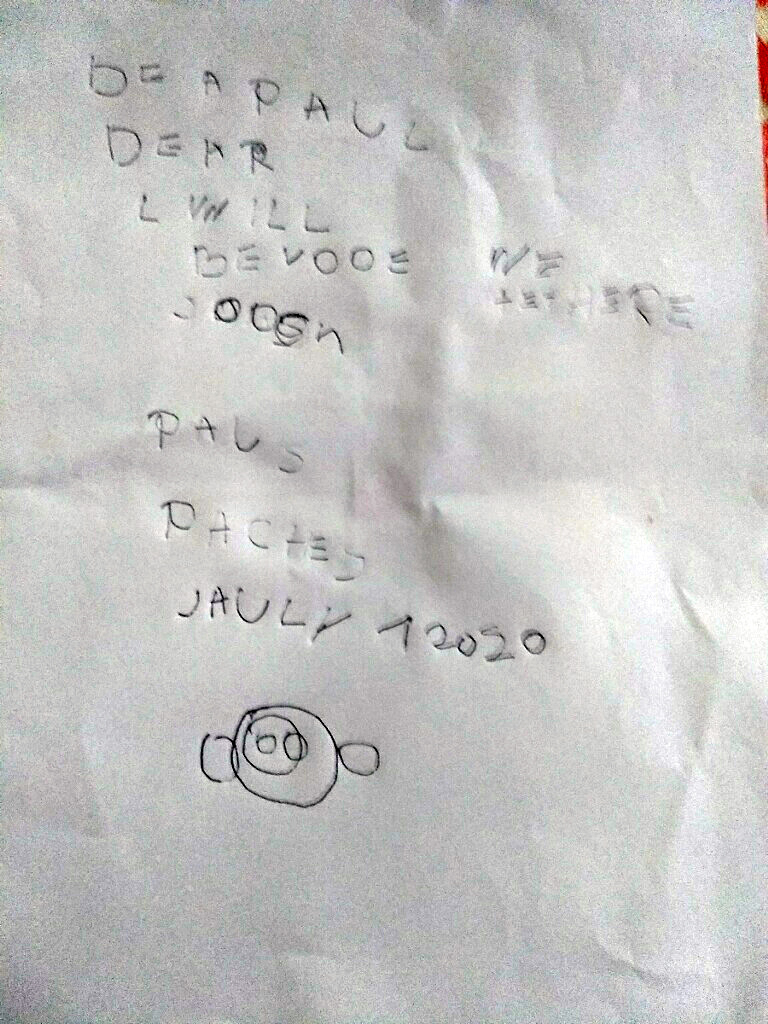 DE A PAUL
DEAR
I WILL
BEVOOE WE
JOOSN
PAUS
PACTES
JAULY 12020